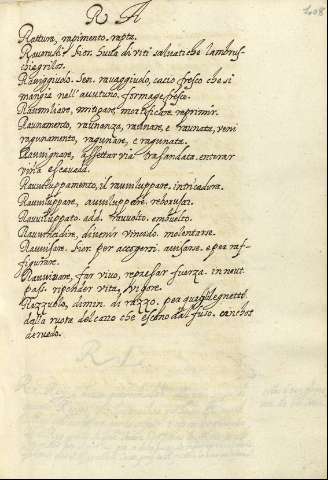 R A
208
Rattura, rapimento. rapta.
Ravonchi. fior. buta di viti salvatiche lambrus-
Raviggiuolo. Sen. ravaggiuolo, cacio fresco che si
mangia nell'auttuno. formage fresco.
Raumiliare, mitigare, mortificare reprimir.
Raunamento, raunanza, raunare, e raunata, veni
ragunamento, ragunare, e ragunata.
Ravvignare, assettar via trasandata.
Ravviluppamento, il ravviluppare. intricadura.
Ravviluppare, avviluppare. rebouxar.
Ravviluppato. add. travolto. embuelto.
Ravvincidire, divenir vincido. molentarse.
Ravvisare. fior. per accorgersi avisarse. e per raf-
figurare.
Ravvivare, far vivo, represar fuerza. in neut.
pass. riprender vita, vigore.
Razzuolo, dimin. di razzo. per que' legnetti
dalla ruota del carro che escono dal fuso.